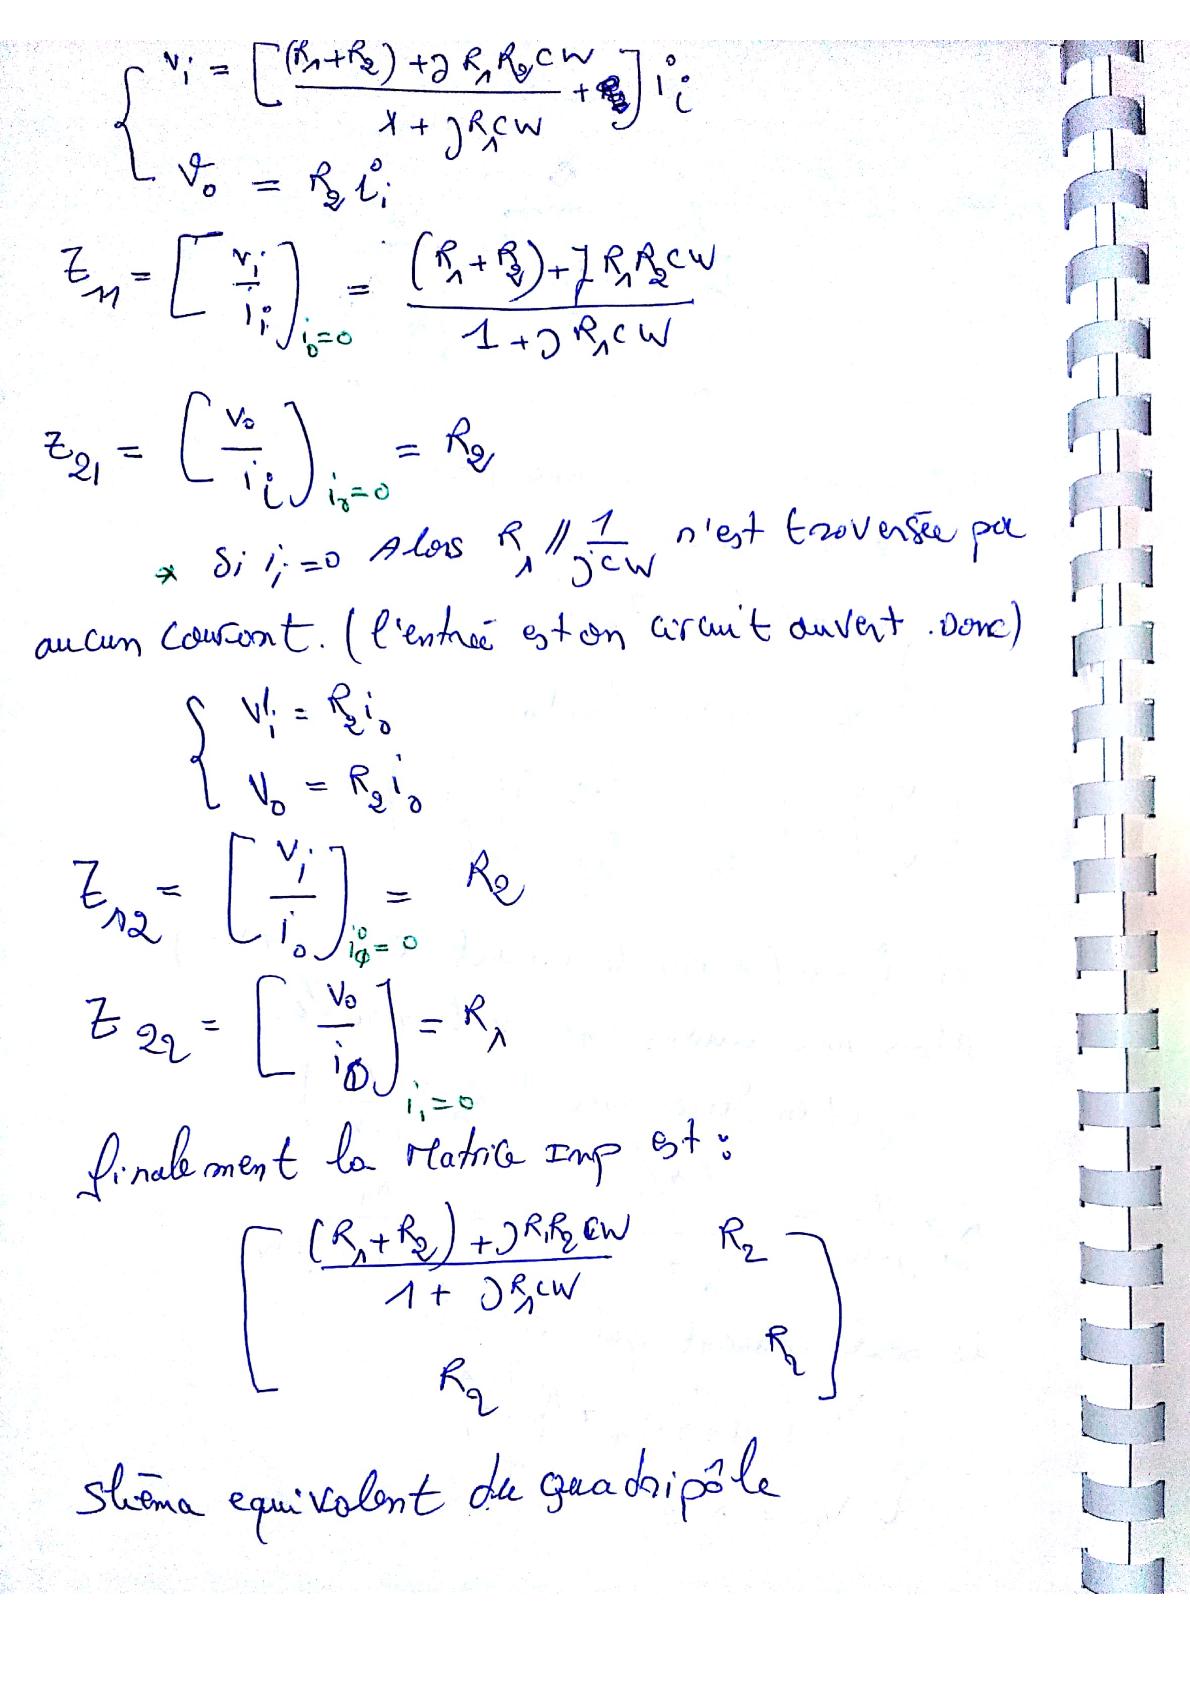 { v_i = [ ((R_1+R_2)+j R_1R_2CW) / (1+jR_1CW) ] i_i
v_o = R_2 i_i
Z_11 = [v_i / i_i]_{i_o=0} = ((R_1+R_2)+j R_1R_2CW) / (1+jR_1CW)
Z_21 = [v_o / i_i]_{i_o=0} = R_2
* Si i_i=0 Alors R_1 // 1/jCW n'est traversée par
aucun courant. (l'entrée est en circuit ouvert. Donc)
{ V_i = R_2 i_o
V_o = R_2 i_o
Z_12 = [V_i / i_o]_{i_i=0} = R_2
Z_22 = [V_o / i_o]_{i_i=0} = R_1
finalement la Matrice Imp est :
[ ((R_1+R_2)+jR_1R_2CW) / (1+jR_1CW) R_2
R_2 R_2 ]
Shéma equivalent du quadripôle